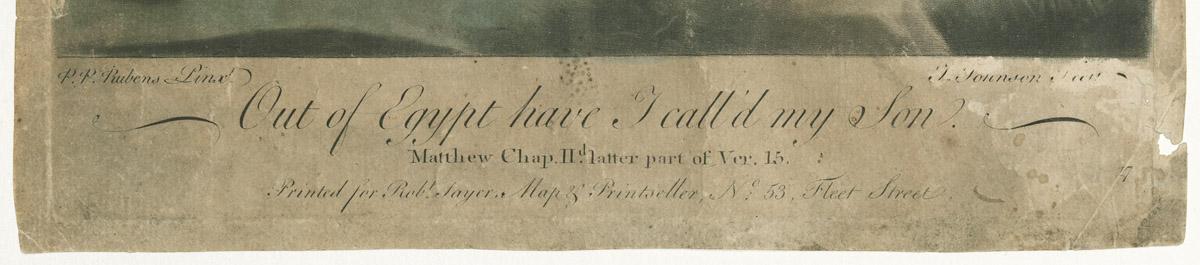 P. P. Rubens Pinxt. J. Johnson Fecit
Out of Egypt have I call'd my Son.
Matthew Chap. IId. latter part of Ver. 15.
Printed for Robt. Sayer, Map & Printseller, No. 53, Fleet Street.